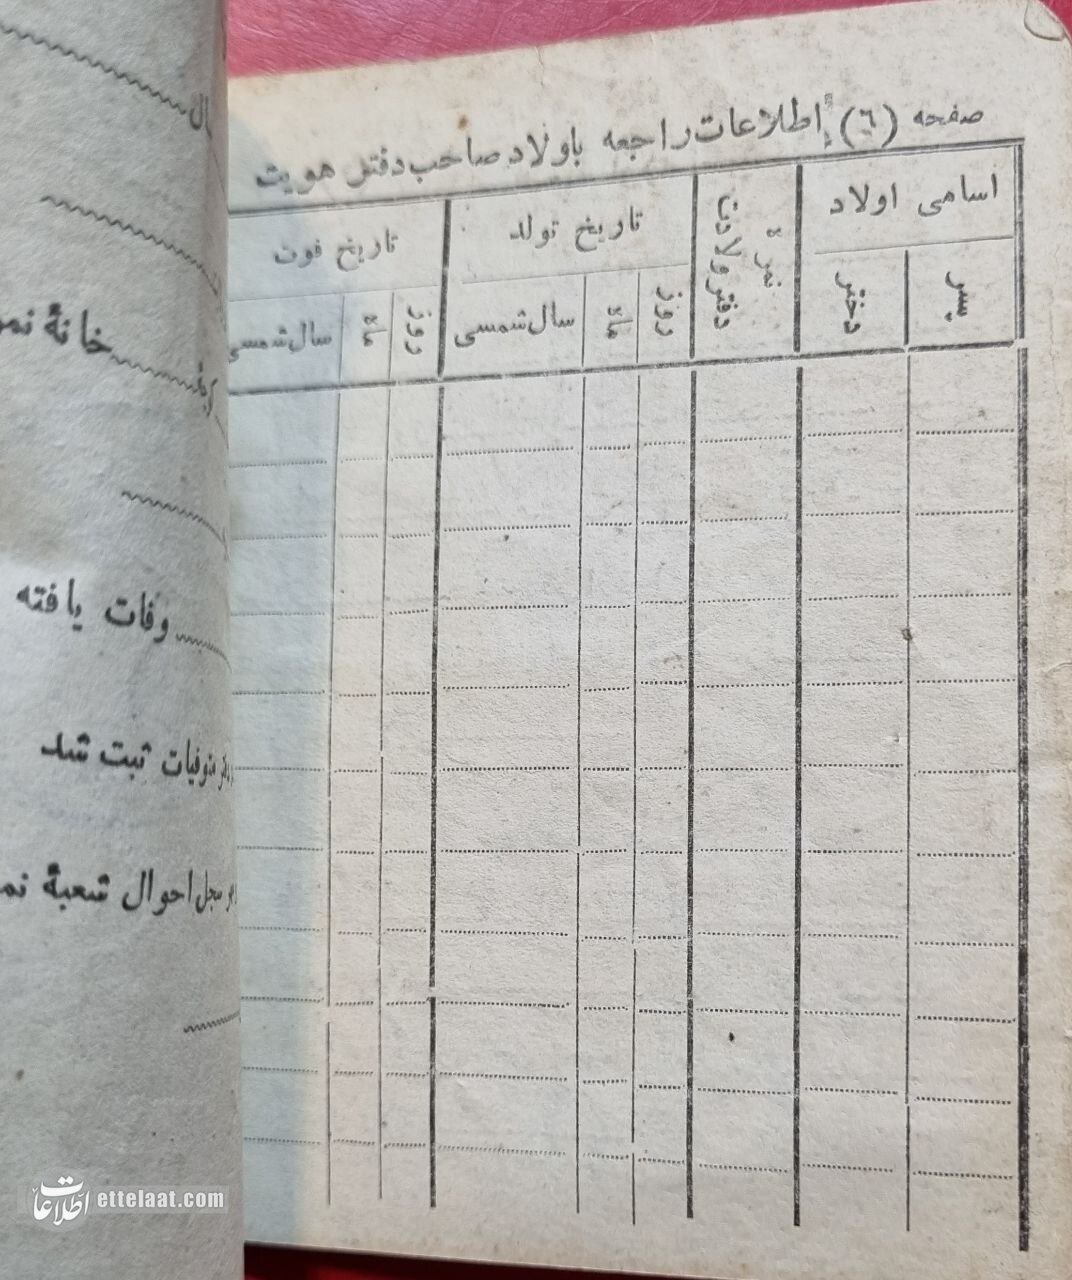 صفحه (٦) اطلاعات راجعه باولاد صاحب دفتر هویت
اسامی اولاد
پسر
دختر
نمرهٔ دفتر ولادت
تاریخ تولد
روز
ماه
سال شمسی
تاریخ فوت
روز
ماه
سال شمسی
خانهٔ
وفات یافته
متوفیات ثبت شد
سجل احوال شعبهٔ
اطلاعات ettelaat.com